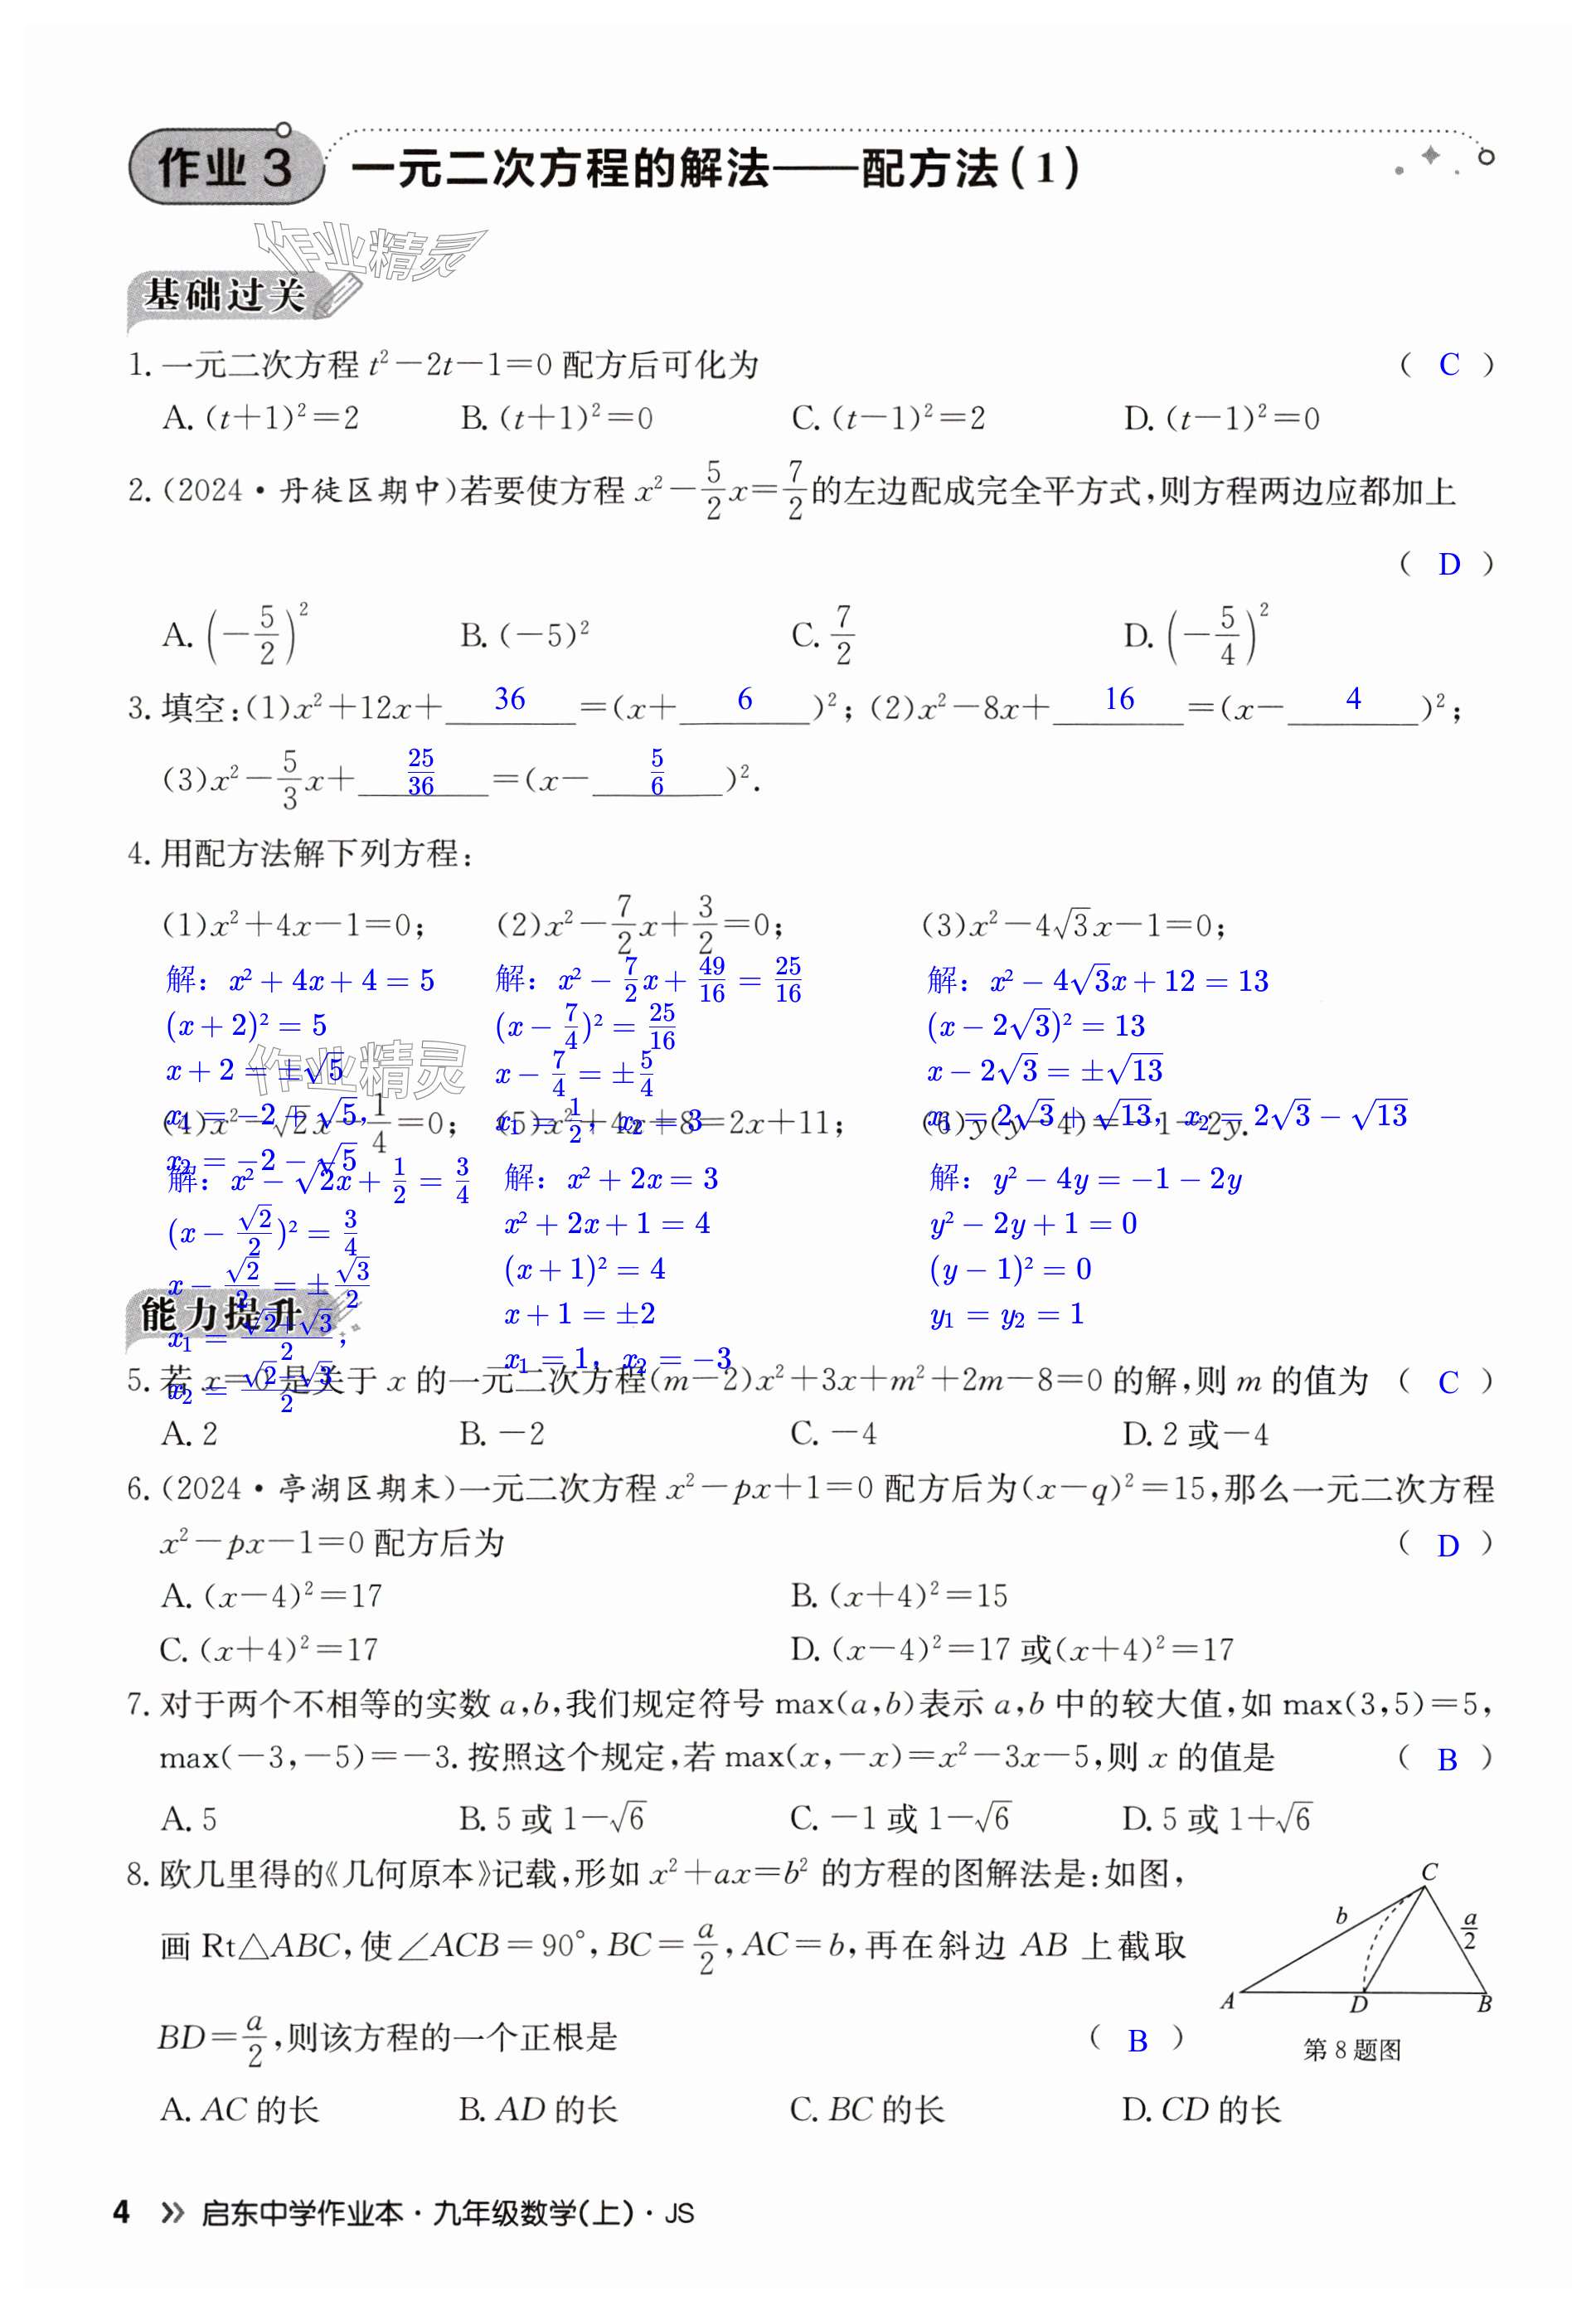 作业 3 一元二次方程的解法——配方法(1)
作业精灵
基础过关
1. 一元二次方程 t²-2t-1=0 配方后可化为 ( C )
A. (t+1)²=2 B. (t+1)²=0 C. (t-1)²=2 D. (t-1)²=0
2. (2024·丹徒区期中)若要使方程 x²-5/2x=7/2的左边配成完全平方式,则方程两边应都加上
( D )
A. (-5/2)² B. (-5)² C. 7/2 D. (-5/4)²
3. 填空:(1)x²+12x+ 36 =(x+ 6 )²; (2)x²-8x+ 16 =(x- 4 )²;
(3)x²-5/3x+ 25/36 =(x- 5/6 )².
4. 用配方法解下列方程:
(1)x²+4x-1=0; (2)x²-7/2x+3/2=0; (3)x²-4√3x-1=0;
解: x²+4x+4=5 解: x²-7/2x+49/16=25/16 解: x²-4√3x+12=13
(x+2)²=5 (x-7/4)²=25/16 (x-2√3)²=13
x+2=±√5 x-7/4=±5/4 x-2√3=±√13
作业精灵
x₁=-2+√5, x₁=1/2, x₂=3 x₁=2√3+√13, x₂=2√3-√13
(4)x²-√2x-1/4=0; (5)x²+4x+8=2x+11; (6)y(y-4)=-1-2y.
x₂=-2-√5
解: x²-√2x+1/2=3/4 解: x²+2x=3 解: y²-4y=-1-2y
(x-√2/2)²=3/4 x²+2x+1=4 y²-2y+1=0
x-√2/2=±√3/2 (x+1)²=4 (y-1)²=0
x₁=(√2+√3)/2, x+1=±2 y₁=y₂=1
x₂=(√2-√3)/2 x₁=1, x₂=-3
能力提升
5. 若 x=0 是关于 x 的一元二次方程(m-2)x²+3x+m²+2m-8=0 的解,则 m 的值为 ( C )
A. 2 B. -2 C. -4 D. 2 或-4
6. (2024·亭湖区期末)一元二次方程 x²-px+1=0 配方后为(x-q)²=15,那么一元二次方程
x²-px-1=0 配方后为 ( D )
A. (x-4)²=17 B. (x+4)²=15
C. (x+4)²=17 D. (x-4)²=17 或(x+4)²=17
7. 对于两个不相等的实数 a,b,我们规定符号 max(a,b)表示 a,b 中的较大值,如 max(3,5)=5,
max(-3,-5)=-3. 按照这个规定,若 max(x,-x)=x²-3x-5,则 x 的值是 ( B )
A. 5 B. 5 或 1-√6 C. -1 或 1-√6 D. 5 或 1+√6
8. 欧几里得的《几何原本》记载,形如 x²+ax=b² 的方程的图解法是:如图,
画 Rt△ABC,使∠ACB=90°,BC=a/2,AC=b,再在斜边 AB 上截取
BD=a/2,则该方程的一个正根是 ( B )
C
b
a/2
A D B
第 8 题图
A. AC 的长 B. AD 的长 C. BC 的长 D. CD 的长
4 启东中学作业本·九年级数学(上)·JS